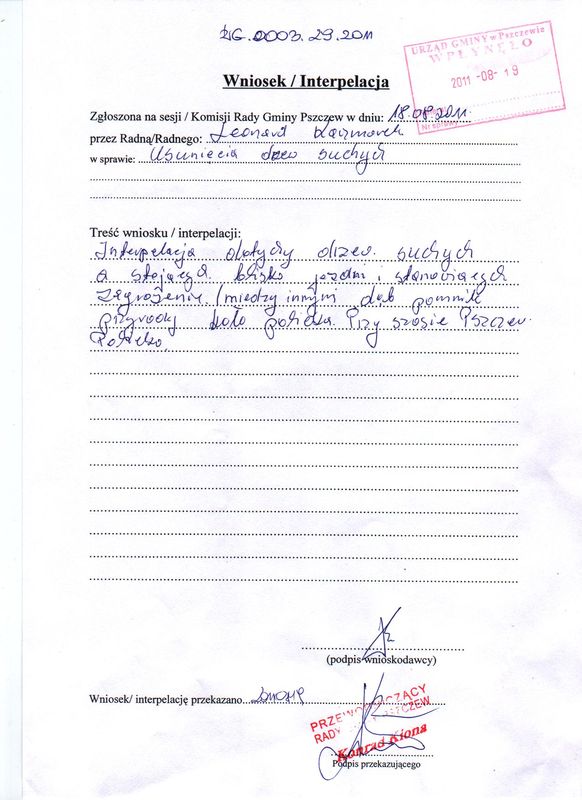 ZG.0003.29.2011
URZĄD GMINY w Pszczewie
WPŁYNĘŁO
2011 -08- 19
Wniosek / Interpelacja
Zgłoszona na sesji / Komisji Rady Gminy Pszczew w dniu: 18.08.2011
przez Radną/Radnego: Leonard Kaczmarek
w sprawie: Usunięcia drzew suchych
Treść wniosku / interpelacji:
Interpelacja dotyczy drzew. suchych
a stojących blisko jezdni i stanowiących
zagrożenie /między innymi dąb pomnik
przyrody koło Policka. Przy szosie Pszczew
Policko.
(podpis wnioskodawcy)
Wniosek/ interpelację przekazano
PRZEWODNICZĄCY
RADY PSZCZEW
Konrad Kiona
Podpis przekazującego